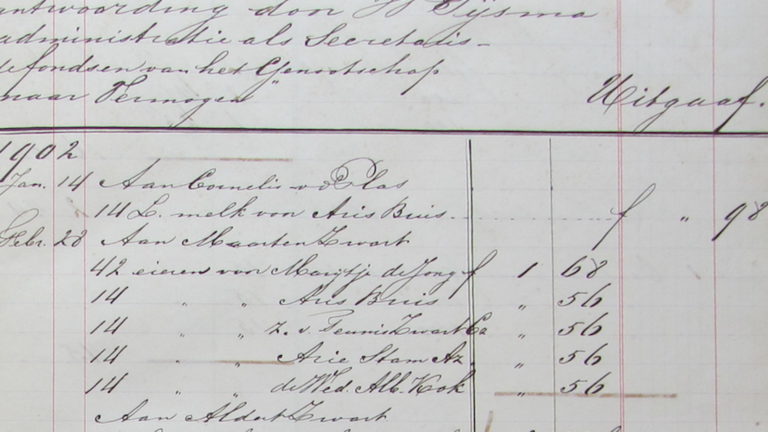 antwoording don H Tijsma
administratie als Secretaris
fondsen van het Genootschap
naar Vermogen" Uitgaaf.
1902
Jan. 14 Aan Cornelis v d Plas
14 L. melk voor Aris Buis f " 98
Febr. 28 Aan Maarten Zwart
42 eieren voor Marijtje de Jong f 1 68
14 " " Aris Buis " 56
14 " " z. v. Teunis Zwart Cz " 56
14 " " Arie Stam Az. " 56
14 " " de Wed. Alb. Kok " 56
Aan Aldert Zwart